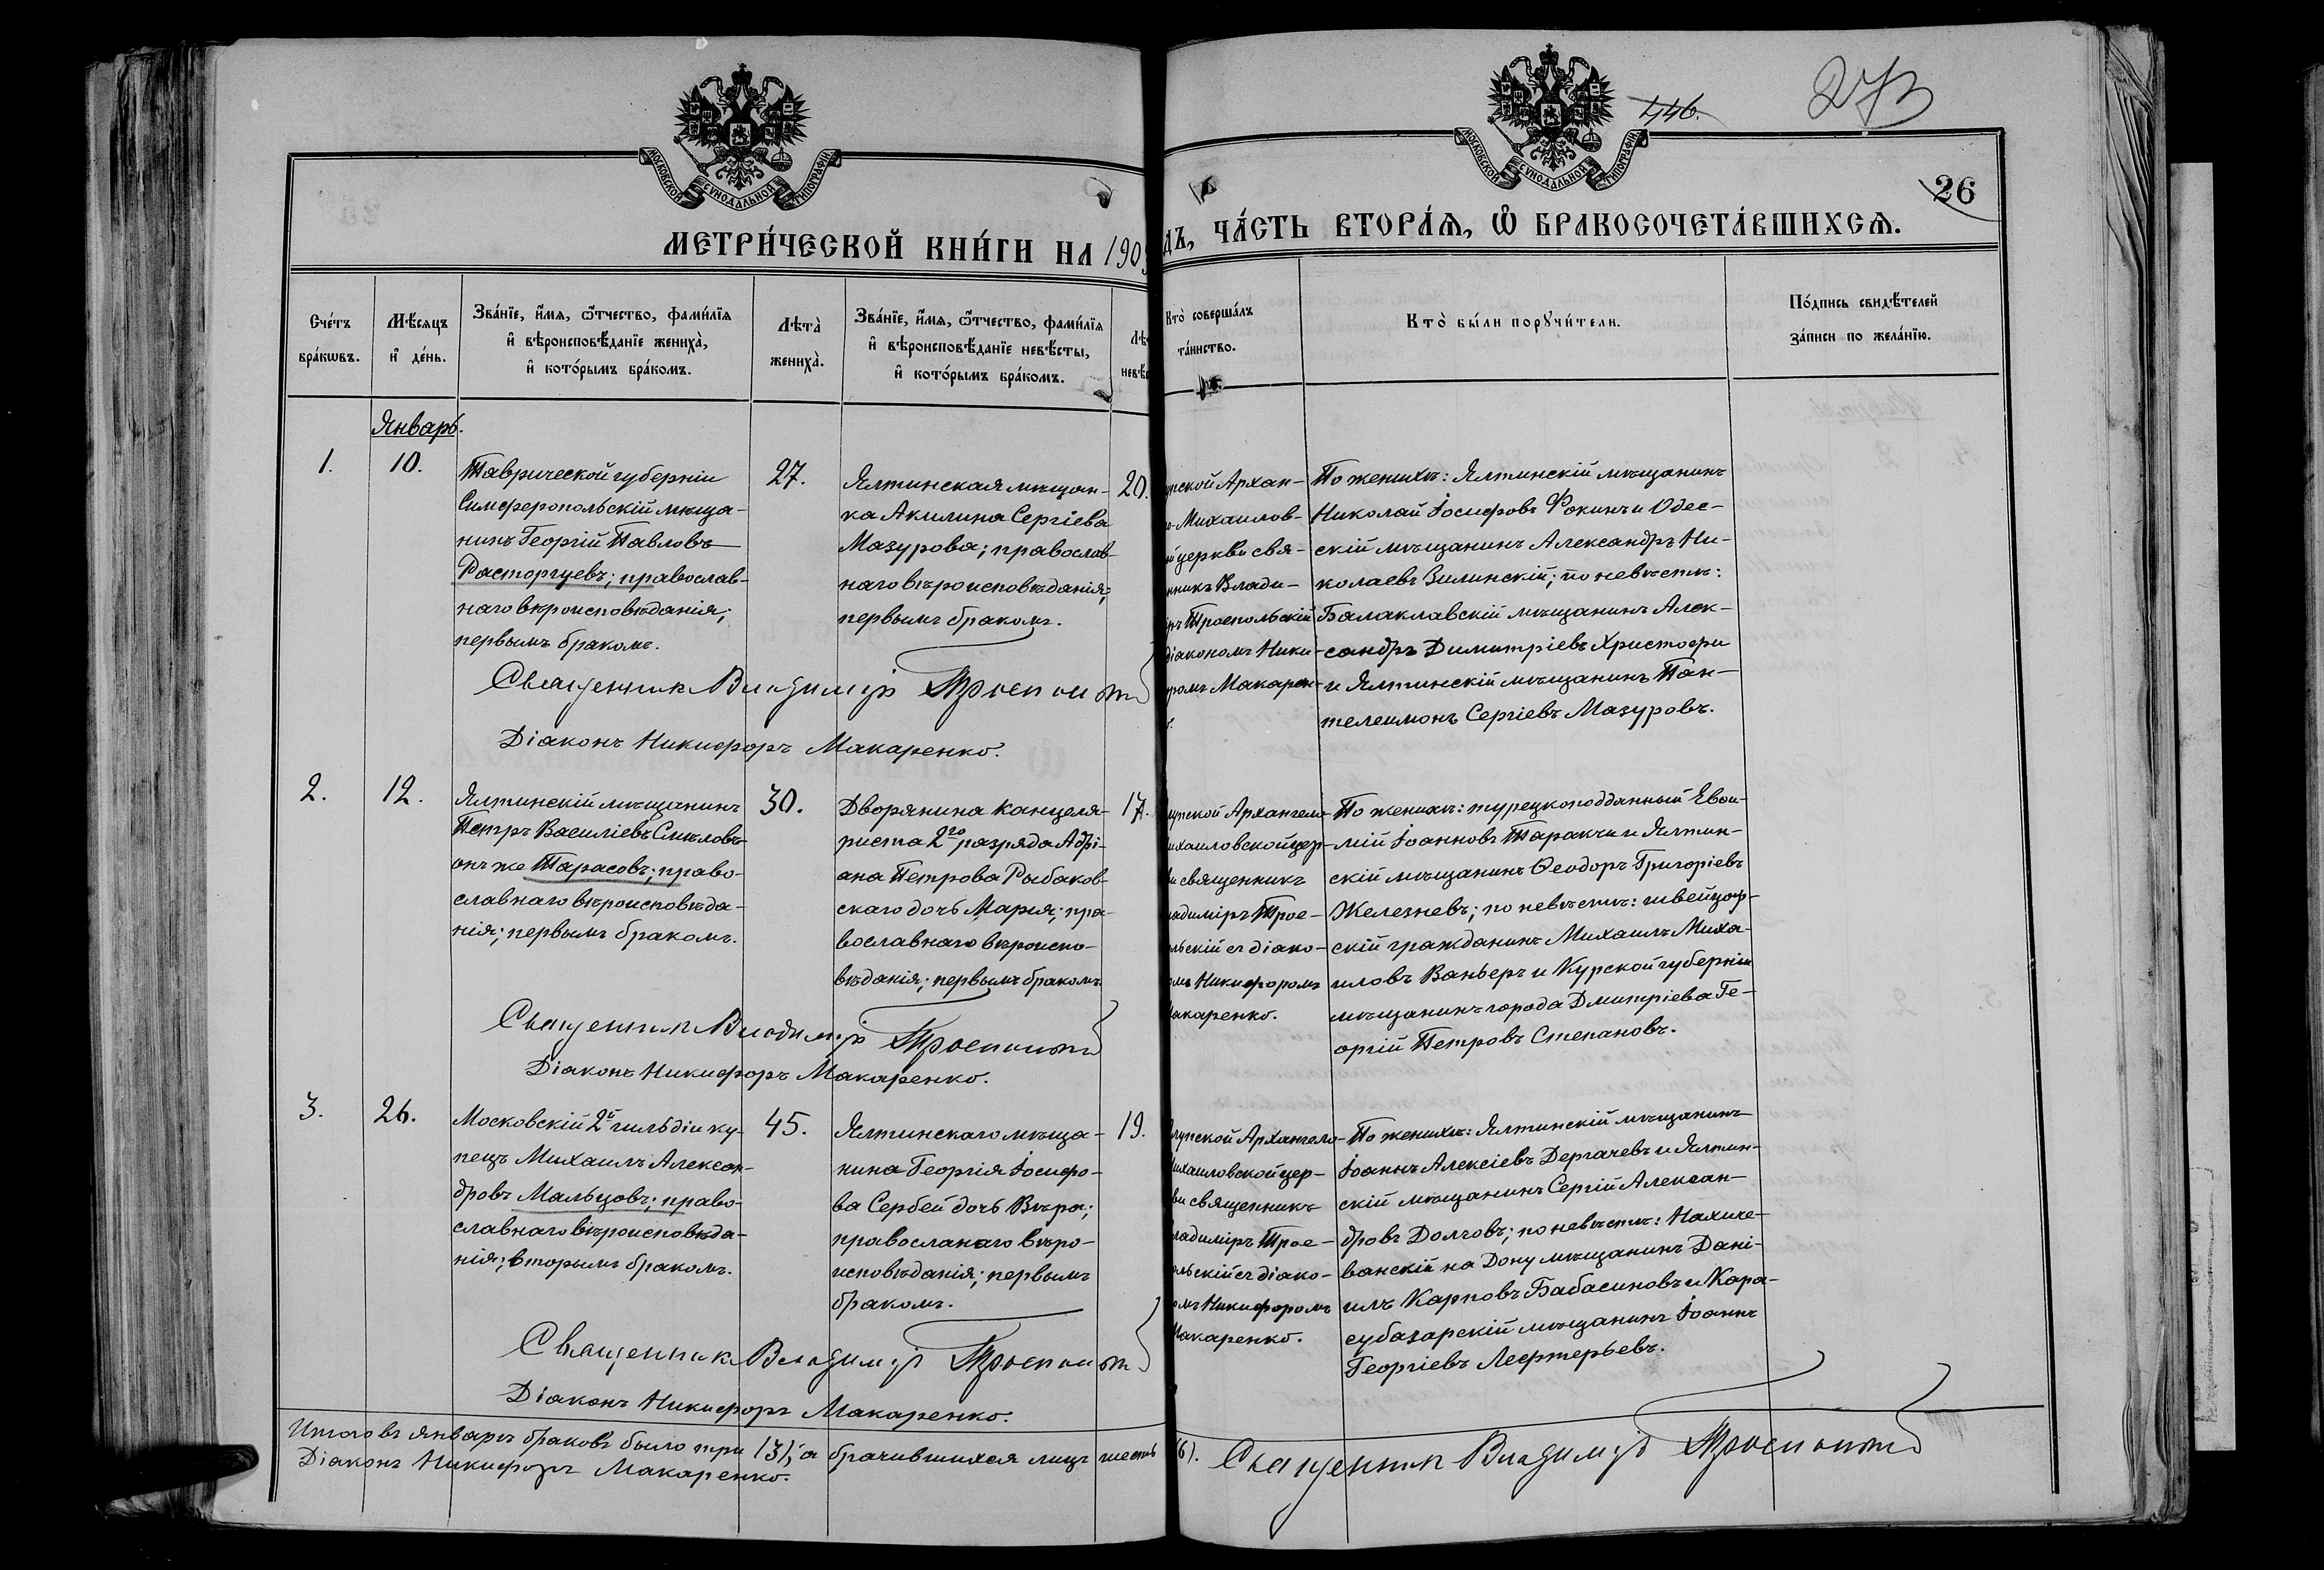 446.
273
МОСКОВСКОЙ СѴНОДАЛЬНОЙ ТИПОГРАФІИ
МОСКОВСКОЙ СѴНОДАЛЬНОЙ ТИПОГРАФІИ
26
МЕТРИ́ЧЕСКОЙ КНИ́ГИ НА 190
ДЪ, ЧА́СТЬ ВТОРА́Ѧ, Ѽ БРАКОСОЧЕТА́ВШИХСѦ.
Сче́тъ бра́кѡвъ.
Мѣ́сяцъ и҆ де́нь.
Зва́нїе, и҆́мя, ѻ҆́тчество, фами́лїя
и҆ вѣроисповѣ́данїе жениха̀,
и҆ кото́рымъ бра́комъ.
Лѣта̀ жениха̀.
Зва́нїе, и҆́мя, ѻ҆́тчество, фами́лїя
и҆ вѣроисповѣ́данїе невѣ́сты,
и҆ кото́рымъ бра́комъ.
Кто̀ соверша́лъ
та́инство.
Кто̀ бы́ли порꙋчи́тели.
По́дпись свидѣ́телей
за́писи по жела́нїю.
Январь.
1.
10.
Таврической губерніи
Симферопольскій мѣща-
нинъ Георгій Павловъ
Расторгуевъ; православ-
наго вѣроисповѣданія;
первымъ бракомъ.
27.
Ялтинская мѣщан-
ка Акилина Сергіева
Мазурова; православ-
наго вѣроисповѣданія;
первымъ бракомъ.
20.
пской Архан-
о-Михаилов-
й церкви свя-
нникъ Влади-
ръ Троепольскій
діакономъ Ники-
ромъ Макарен-
По женихѣ: Ялтинскій мѣщанинъ
Николай Іосифовъ Фокинъ и Одес-
скій мѣщанинъ Александръ Ни-
колаевъ Зилинскій; по невѣстѣ:
Балаклавскій мѣщанинъ Алек-
сандръ Димитріевъ Христофи
и Ялтинскій мѣщанинъ Пан-
телеимонъ Сергіевъ Мазуровъ.
Священникъ Владиміръ Троепольскій
Діаконъ Никифоръ Макаренко.
2.
12.
Ялтинскій мѣщанинъ
Петръ Василіевъ Смѣловъ
онъ же Тарасовъ; право-
славнаго вѣроисповѣда-
нія; первымъ бракомъ.
30.
Дворянина канцеля-
риста 2го разряда Адрі-
ана Петрова Рыбаков-
скаго дочь Марія; пра-
вославнаго вѣроиспо-
вѣданія; первымъ бракомъ.
17.
упской Архангело-
ихаиловской цер-
ви священникъ
ладиміръ Трое-
льскій съ діако-
омъ Никифоромъ
Макаренко.
По женихѣ: турецкоподданный Евѳи-
мій Іоанновъ Таракчи и Ялтин-
скій мѣщанинъ Ѳеодоръ Григоріевъ
Железневъ; по невѣстѣ: швейцар-
скій гражданинъ Михаилъ Миха-
иловъ Ваньеръ и Курской губерніи
мѣщанинъ города Дмитріева Ге-
оргій Петровъ Степановъ.
Священникъ Владиміръ Троепольскій
Діаконъ Никифоръ Макаренко.
3.
26.
Московскій 2й гильдіи ку-
пецъ Михаилъ Алексан-
дровъ Мальцовъ; право-
славнаго вѣроисповѣда-
нія; вторымъ бракомъ.
45.
Ялтинскаго мѣща-
нина Георгія Іосифо-
ва Сербей дочь Вѣра;
правосланаго вѣро-
исповѣданія; первымъ
бракомъ.
19.
лупской Архангело-
Михаиловской цер-
ви священникъ
ладиміръ Трое-
ольскій съ діако-
омъ Никифоромъ
Макаренко.
По женихѣ: Ялтинскій мѣщанинъ
Іоаннъ Алексіевъ Дергачевъ и Ялтин-
скій мѣщанинъ Сергій Алексан-
дровъ Долговъ; по невѣстѣ: Нахиче-
ванскій на Дону мѣщанинъ Дані-
илъ Карповъ Бабасиновъ и Кара-
субазарскій мѣщанинъ Іоаннъ
Георгіевъ Лефтерьевъ.
Священникъ Владиміръ Троепольскій
Діаконъ Никифоръ Макаренко.
Итого въ январѣ браковъ было три (3), а брачившихся лицъ шесть (6). Священникъ Владиміръ Троепольскій
Діаконъ Никифоръ Макаренко.